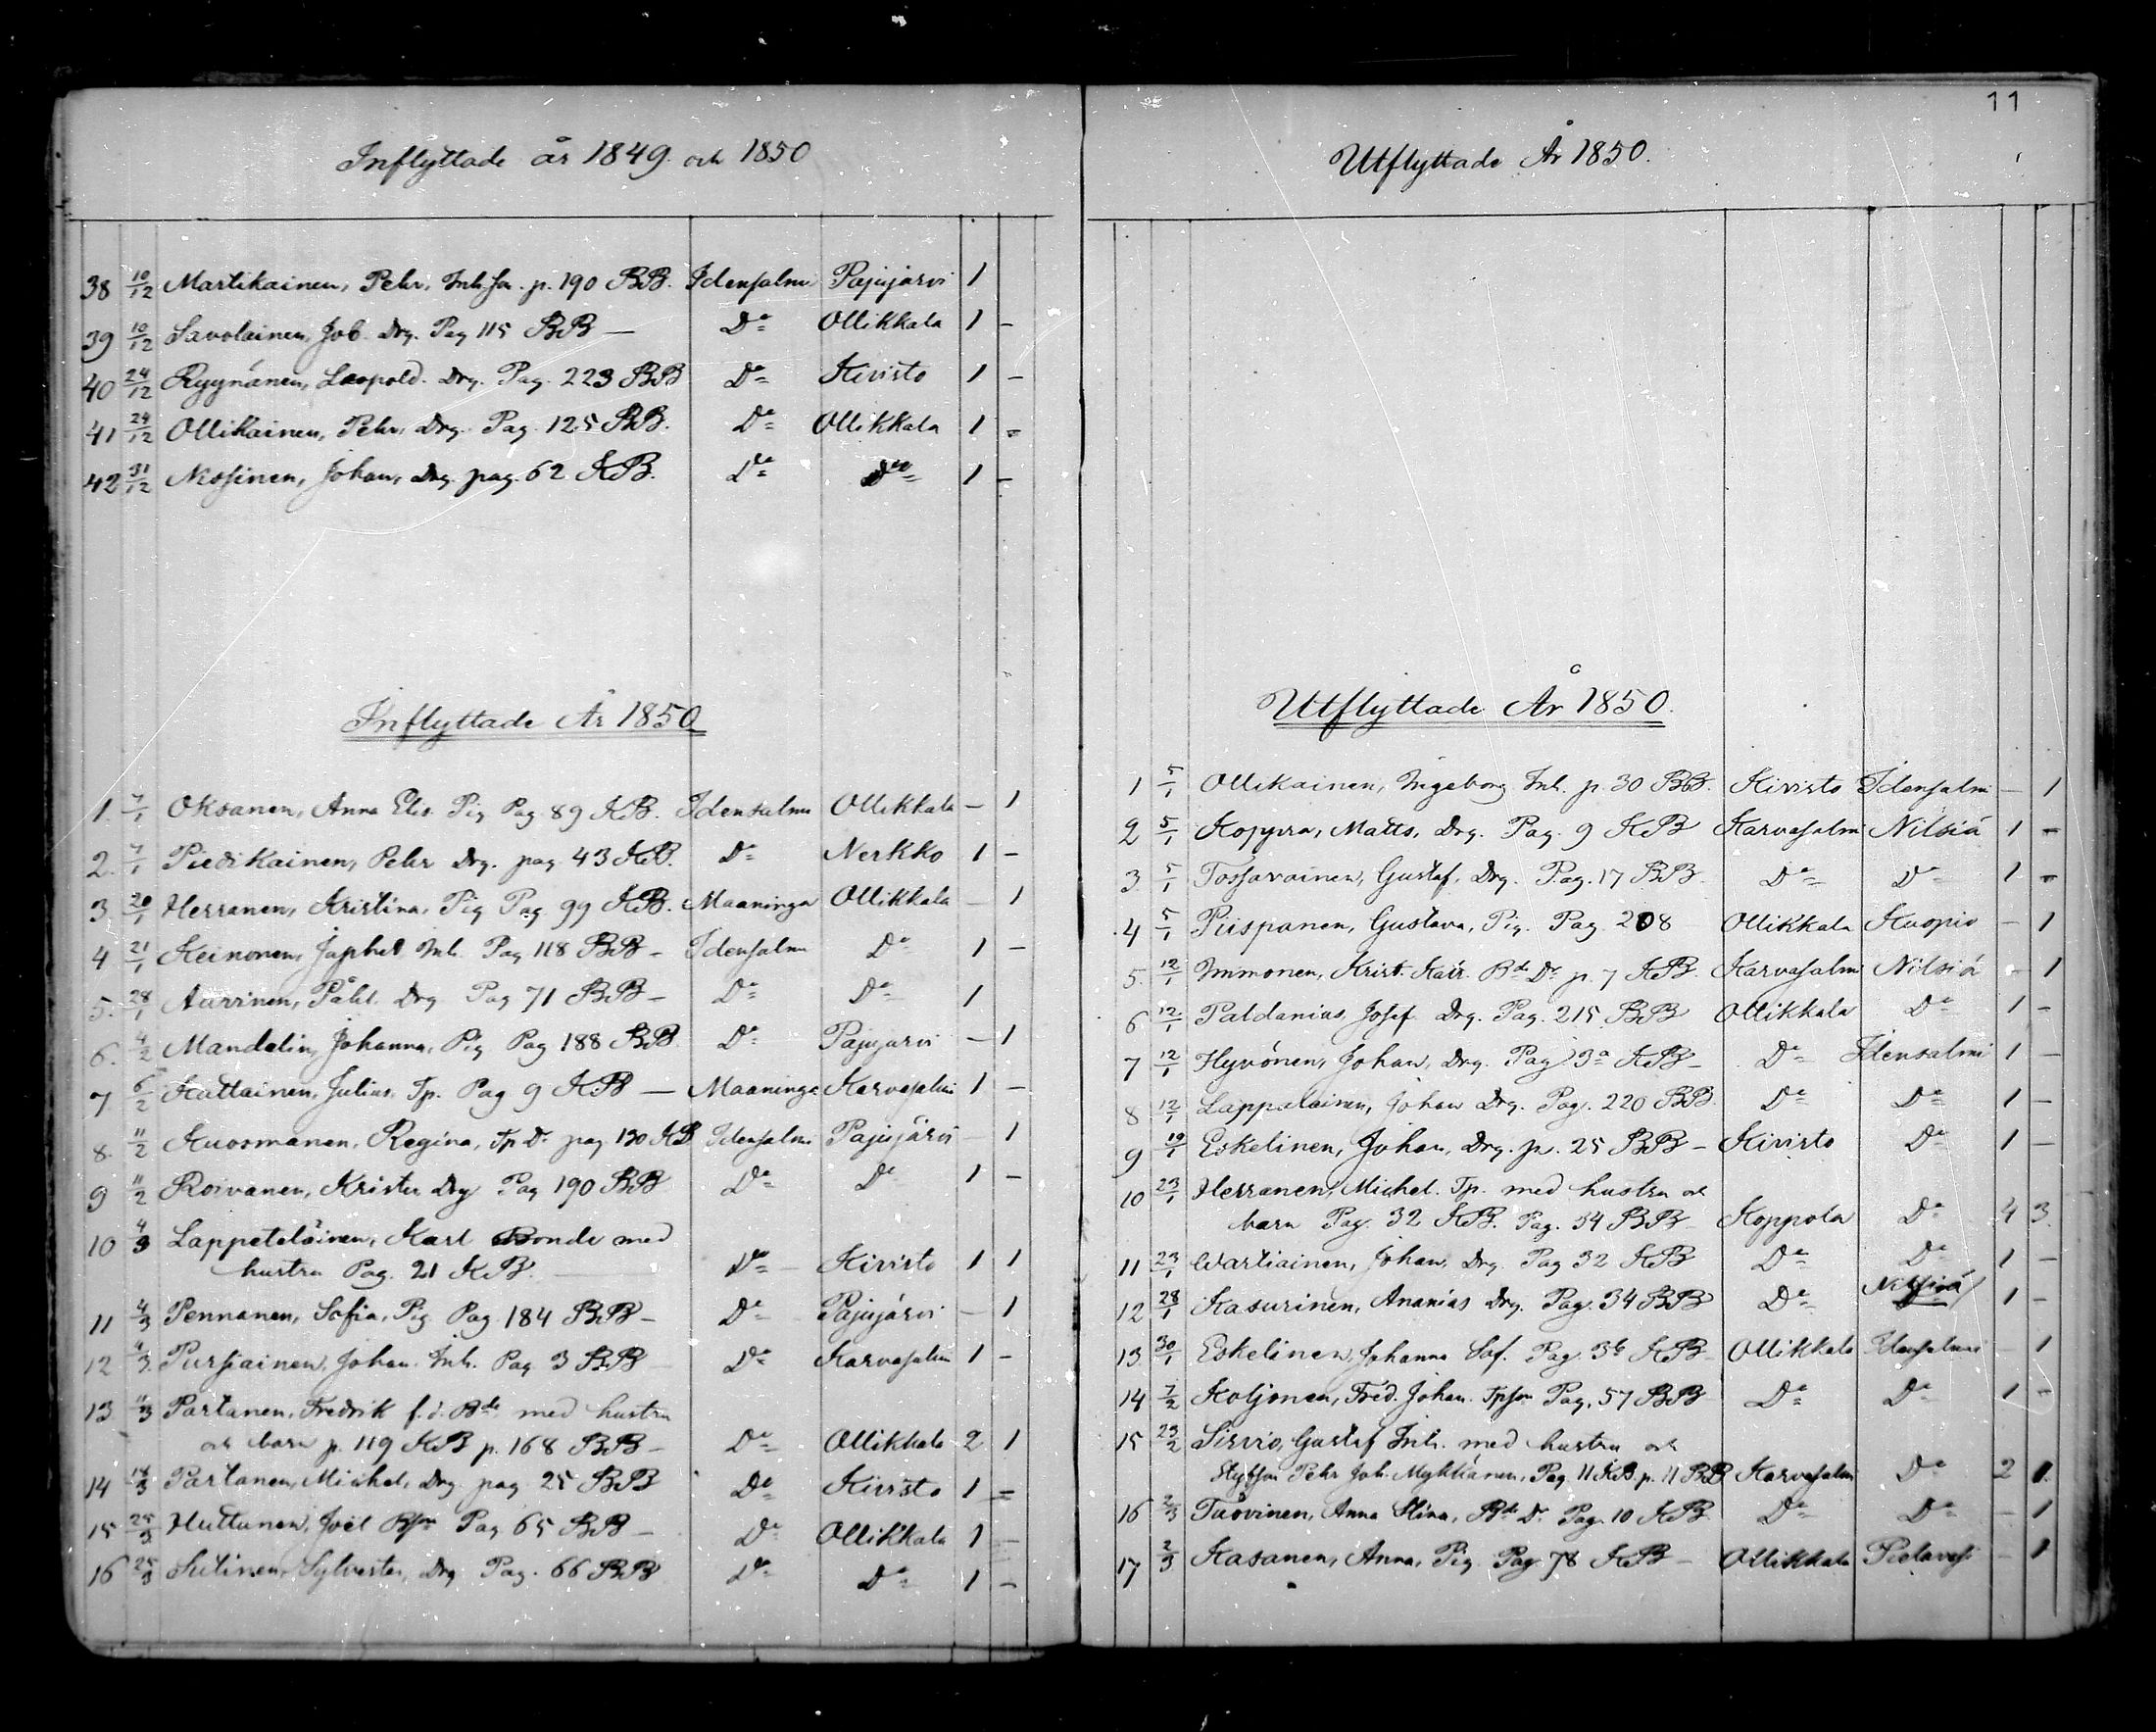 Inflyttade år 1849. och 1850
38 10/12 Martikainen, Pehr, Inh.son. p. 190 BB. Idensalmi Pajujärvi 1
39 10/12 Savolainen, Job. Drg. Pag 115 BB — Do Ollikkala 1 -
40 24/12 Ryynänen, Leopold. Drg. Pag. 223 BB Do Kivisto 1 -
41 24/12 Ollikainen, Pehr, Drg. Pag. 125 BB. Do Ollikkala 1 -
42 31/12 Nissinen, Johan, Drg. pag. 62 KB. Do Do 1 -
Inflyttade År 1850
1. 7/1 Oksanen, Anna Elis. Pig Pag 89 KB. Idensalmi Ollikkala - 1
2. 7/1 Piedikainen, Pehr Drg. pag. 43 KB. Do Nerkko 1 -
3. 20/1 Herranen, Kristina, Pig Pag. 99 KB. Maaninga Ollikkala - 1
4 21/1 Keinonen, Japhet Inh. Pag 118 BB - Idensalmi Do 1 -
5. 28/1 Aurinen, Påhl. Drg Pag 71 BB - Do Do 1
6. 4/2 Mandelin, Johanna, Pig Pag 188 BB Do Pajujarvi - 1
7 6/2 Kattainen, Julius, Tp. Pag 9 KB — Maaninga Karvasalmi 1 -
8. 11/2 Kuosmanen, Regina, Tp Dr pag 130 KB Idensalmi Pajujärvi 1
9 11/2 Roivanen, Krister Drg Pag 190 BB Do Do 1 -
10 4/3 Lappeteläinen, Karl Bonde med
hustru Pag. 21 KB. — Do - Kivisto 1 1
11 4/3 Pennanen, Sofia, Pig Pag 184 BB - Do Pajujärvi - 1
12 4/3 Pursiainen, Johan. Inh. Pag 3 BB Do Karvasalmi 1 -
13. 11/3 Partanen, Fredrik f.d. Bde med hustru
och barn p. 119 KB p. 168 BB - Do Ollikkala 2 1
14 18/3 Partanen, Michel, Drg pag 25 BB Do Kivisto 1 -
15 25/3 Huttunen, Joel Bson Pag 65 BB - Do Ollikkala 1 -
16 25/3 Sutinen, Sylvester, Drg Pag. 66 BB Do Do 1 -
11
Utflyttade År 1850.
Utflyttade År 1850.
1 5/1 Ollikainen, Ingeborg Inh. p. 30 BB. Kivisto Idensalmi - 1
2 5/1 Koppra, Matts, Drg. Pag. 9 KB Karvasalmi Nilsiä 1 -
3. 5/1 Tossavainen, Gustaf. Drg. Pag. 17 BB. Do Do 1 -
4 5/1 Piispanen, Gustava, Pig. Pag. 208 Ollikkala Kuopio - 1
5. 12/1 Immonen, Krist. Kair. Bde Dr p. 7 KB. Karvasalmi Nilsiä - 1
6 12/1 Paldanius Josef Drg. Pag. 215 BB Ollikkala Do 1 -
7 12/1 Hyvönen, Johan, Drg. Pag 3a KB - Do Idensalmi 1 -
8 12/1 Lappalainen, Johan Drg. Pag. 220 BB. Do Do 1 -
9 19/1 Eskelinen, Johan, Drg. p. 25 BB - Kivisto Do 1 -
10 23/1 Herranen, Michel. Tp. med hustru och
barn Pag. 32 KB. Pag. 54 BB - Koppola Do 4 3.
11 23/1 Wartiainen, Johan, Drg. Pag 32 KB Do Do 1 -
12 28/1 Kasurinen, Ananias Drg. Pag. 34 BB Do Nilsiä 1 -
13. 30/1 Eskelinen, Johanna Sof. Pag. 3b KB - Ollikkala Idensalmi - 1
14 7/2 Koljonen, Fred. Johan. Tpson Pag. 57 BB Do Do 1 -
15 23/2 Sirvio, Gustaf Inh. med hustru och
Styfson Pehr Joh. Mykkänen, Pag. 11 KB. p. 11 BB Karvasalmi Do 2 1.
16 2/3 Tuovinen, Anna Stina, Bde Dr Pag. 10 KB. Do Do - 1
17 2/3 Kasanen, Anna, Pig. Pag. 78 KB - Ollikkala Pielavesi - 1